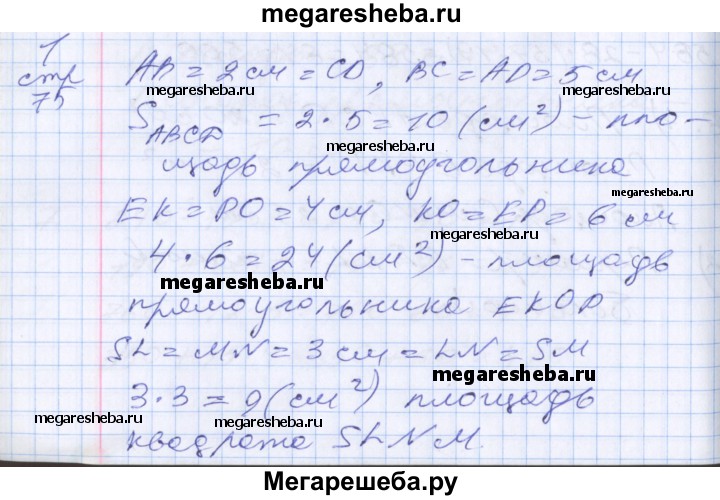 megaresheba.ru
1
стр
75
AB = 2 см = CD, BC = AD = 5 см
megaresheba.ru megaresheba.ru
S ABCD = 2 · 5 = 10 (см²) – пло-
щадь прямоугольника
megaresheba.ru
EK = PO = 4 см, KO = EP = 6 см
megaresheba.ru
4 · 6 = 24 (см²) – площадь
megaresheba.ru
прямоугольника EKOP
SL = MN = 3 см = LN = SM
megaresheba.ru
3 · 3 = 9 (см²) площадь
megaresheba.ru megaresheba.ru
квадрата SLNM.
Мегарешеба.ру